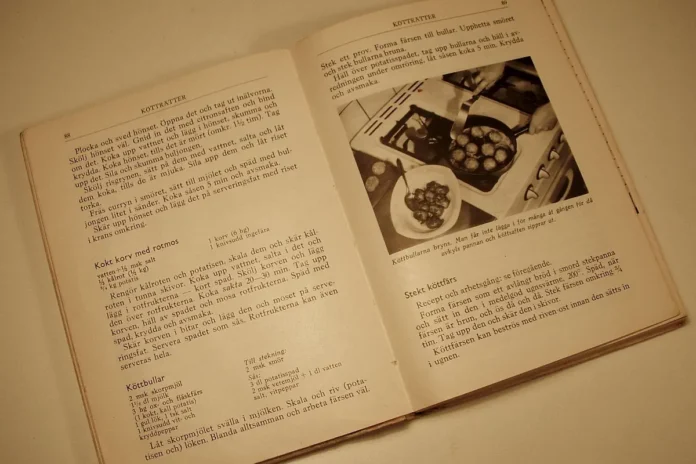 68
KÖTTRÄTTER
Plocka och sved hönset. Öppna det och tag ut inälvorna.
Skölj hönset väl. Gnid in det med citronsaften och bind
om det. Koka upp vattnet och lägg i hönset, skumma och
krydda. Koka hönset, tills det är mört (omkr. 1½ tim). Tag
upp det. Sila och skumma buljongen.
Skölj risgrynen, sätt på dem med vattnet, salta och låt
dem koka, tills de är mjuka. Sila upp dem och låt riset
torka.
Fräs curryn i smöret, sätt till mjölet och späd med bul-
jongen litet i sänder. Koka såsen 5 min och avsmaka.
Skär upp hönset och lägg det på serveringsfat med riset
i krans omkring.
Kokt korv med rotmos
vatten + ½ msk salt
½ kålrot (½ kg)
¾ kg potatis
1 korv (½ kg)
1 knivsudd ingefära
Rengör kålroten och potatisen, skala dem och skär kål-
roten i tunna skivor. Koka upp vattnet, salta i det och
lägg i rotfrukterna — kort spad. Skölj korven och lägg
den över rotfrukterna. Koka sakta 20—30 min. Tag upp
korven, häll av spadet och mosa rotfrukterna. Späd med
spad, krydda och avsmaka.
Skär korven i bitar och lägg den och moset på serve-
ringsfat. Servera spadet som sås. Rotfrukterna kan även
serveras hela.
Köttbullar
2 msk skorpmjöl
1½ dl mjölk
3 hg ox- och fläskfärs
(1 kokt, kall potatis)
1 gul lök, 1 tsk salt
1 knivsudd vit- och
kryddpeppar
Till stekning:
2 msk smör
Sås:
3 dl potatisspad
2 msk vetemjöl + 1 dl vatten
salt, vitpeppar
Låt skorpmjölet svälla i mjölken. Skala och riv (pota-
tisen och) löken. Blanda alltsamman och arbeta färsen väl.
KÖTTRÄTTER
69
Stek ett prov. Forma färsen till bullar. Upphetta smöret
och stek bullarna bruna.
Häll över potatisspadet, tag upp bullarna och häll i av-
redningen under omröring, låt såsen koka 5 min. Krydda
och avsmaka.
Köttbullarna bryns. Man får inte lägga i för många åt gången för då
avkyls pannan och köttsaften sipprar ut.
Stekt köttfärs
Recept och arbetsgång: se föregående.
Forma färsen som ett avlångt bröd i smord stekpanna
och sätt in den i medelgod ugnsvärme, 200°. Späd, när
färsen är brun, och ös då och då. Stek färsen omkring ¾
tim. Tag upp den och skär den i skivor.
Köttfärsen kan beströs med riven ost innan den sätts in
i ugnen.